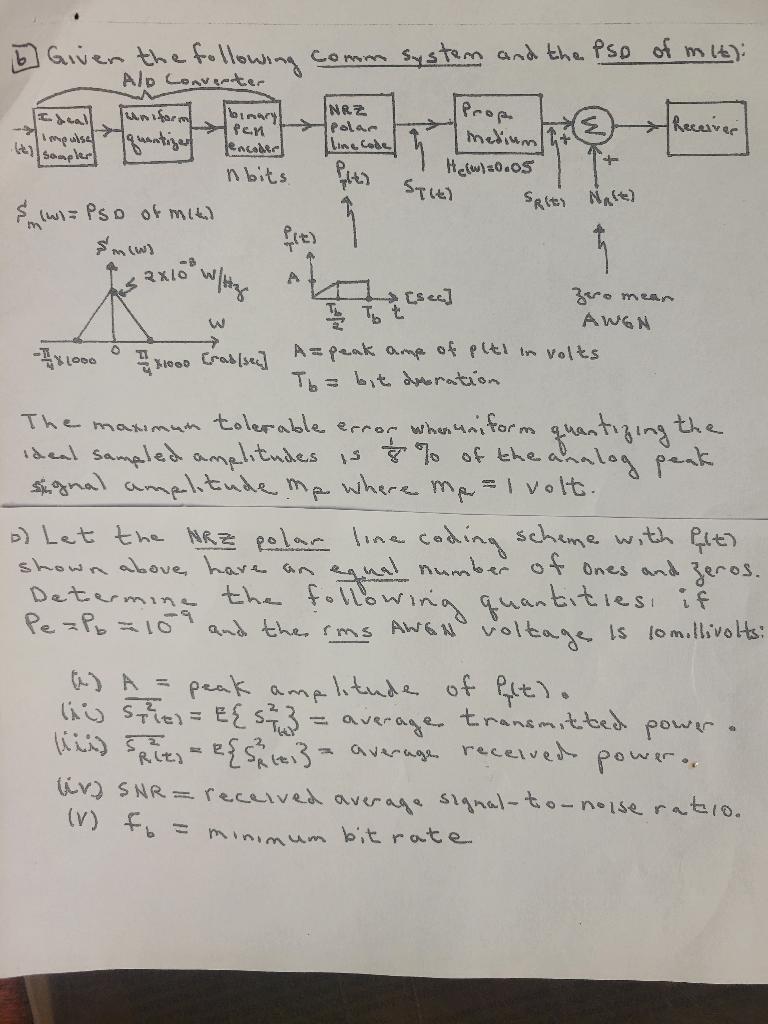 b Given the following comm system and the PSD of m(t):
A/D Converter
Ideal impulse sampler
uniform quantizer
binary PCM encoder
NRZ polar line code
Prop medium
Σ
Receiver
(t)
n bits
P_T(t)
S_T(t)
H_c(ω)=0.05
S_R(t)
+
+
N_R(t)
S_m(ω) = PSD of m(t)
S_m(ω)
2×10^-3 W/Hz
ω
-π/4 ×1000
0
π/4 ×1000 [rad/sec]
P_T(t)
A
T_b/2
T_b
t
[sec]
zero mean
AWGN
A = peak amp of p(t) in volts
T_b = bit duration
The maximum tolerable error when uniform quantizing the
ideal sampled amplitudes is 1/8 % of the analog peak
signal amplitude m_p where m_p = 1 volt.
b) Let the NRZ polar line coding scheme with P_T(t)
shown above, have an equal number of ones and zeros.
Determine the following quantities, if
Pe = P_b = 10^-9 and the rms AWGN voltage is 10 millivolts:
(i) A = peak amplitude of P_T(t).
(ii) S_T^2(t) = E{S_T^2(t)} = average transmitted power.
(iii) S_R^2(t) = E{S_R^2(t)} = average received power.
(iv) SNR = received average signal-to-noise ratio.
(v) f_b = minimum bit rate